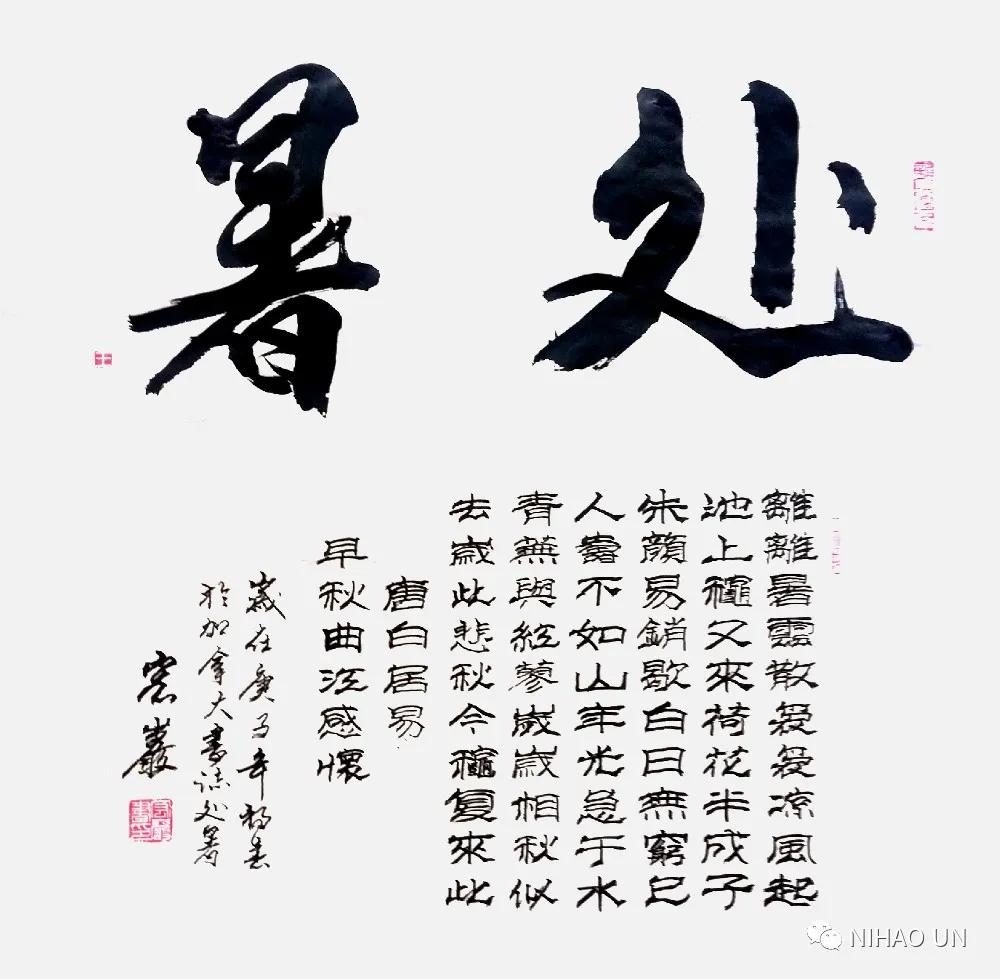 处暑
離離暑雲散爰爰凉風起
池上穐又來荷花半成子
朱顏易銷歇白日無窮已
人壽不如山年光急于水
青蕪與紅蓼歲歲相秋似
去歲此悲秋今穐复來此
唐白居易
早秋曲江感懷
歲在庚子年
於加拿大書誌处暑
巖
NIHAO UN